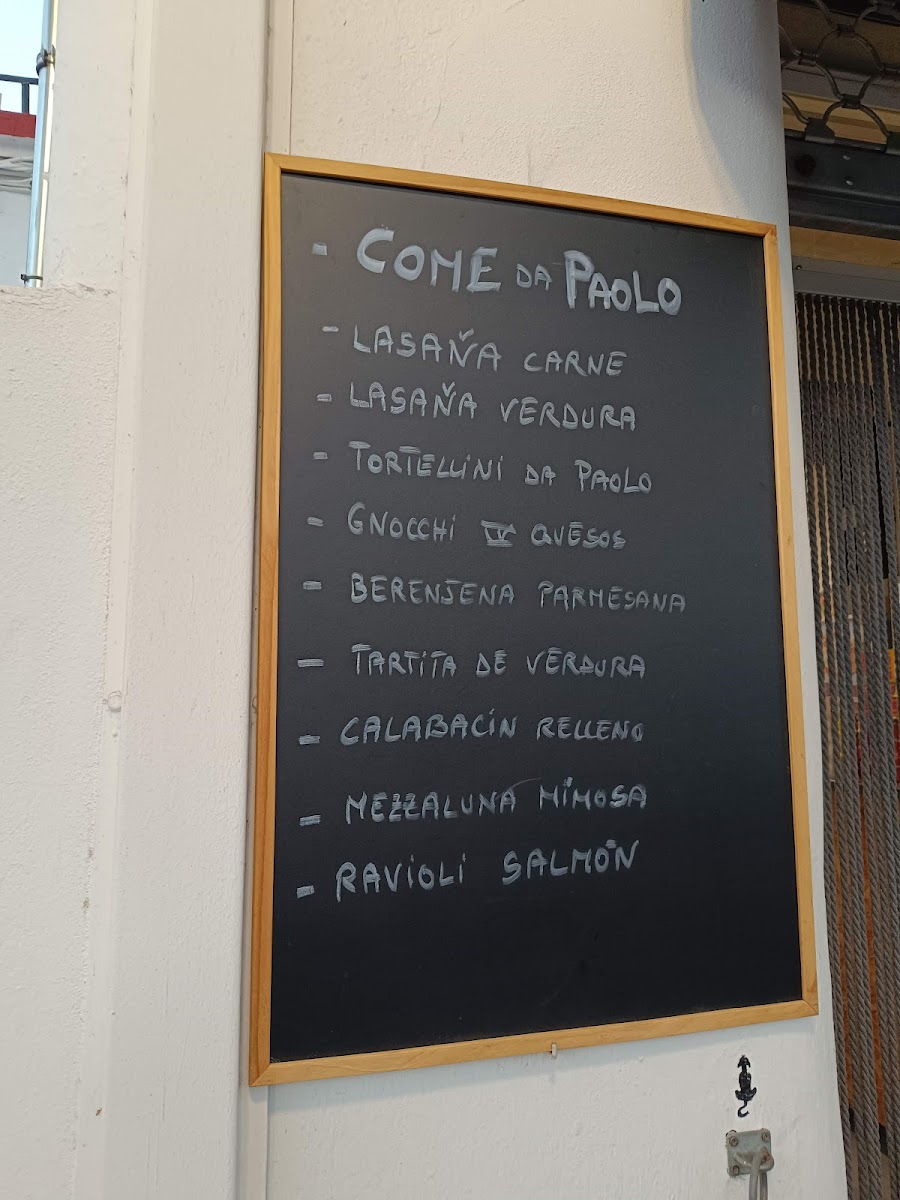 - COME DA PAOLO
- LASAÑA CARNE
- LASAÑA VERDURA
- TORTELLINI DA PAOLO
- GNOCCHI IV QUESOS
- BERENJENA PARMESANA
- TARTITA DE VERDURA
- CALABACÍN RELLENO
- MEZZALUNA MIMOSA
- RAVIOLI SALMÓN